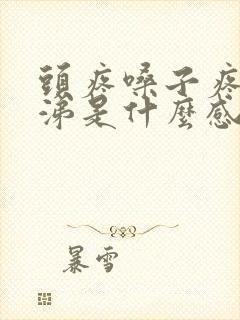 頭疼嗓子疼
涕是什麼感
暴雪